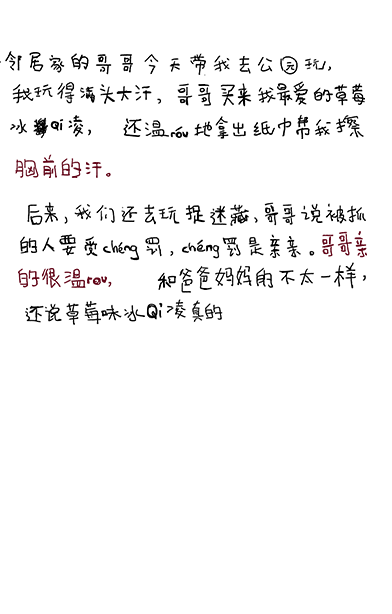 邻居家的哥哥今天带我去公园玩，
我玩得满头大汗，哥哥买来我最爱的草莓
冰Qi凌，还温róu地拿出纸巾帮我擦
胸前的汗。
后来，我们还去玩捉迷藏，哥哥说被抓
的人要受chéng罚，chéng罚是亲亲。哥哥亲
的很温rou，和爸爸妈妈的不太一样，
还说草莓味冰Qi凌真的